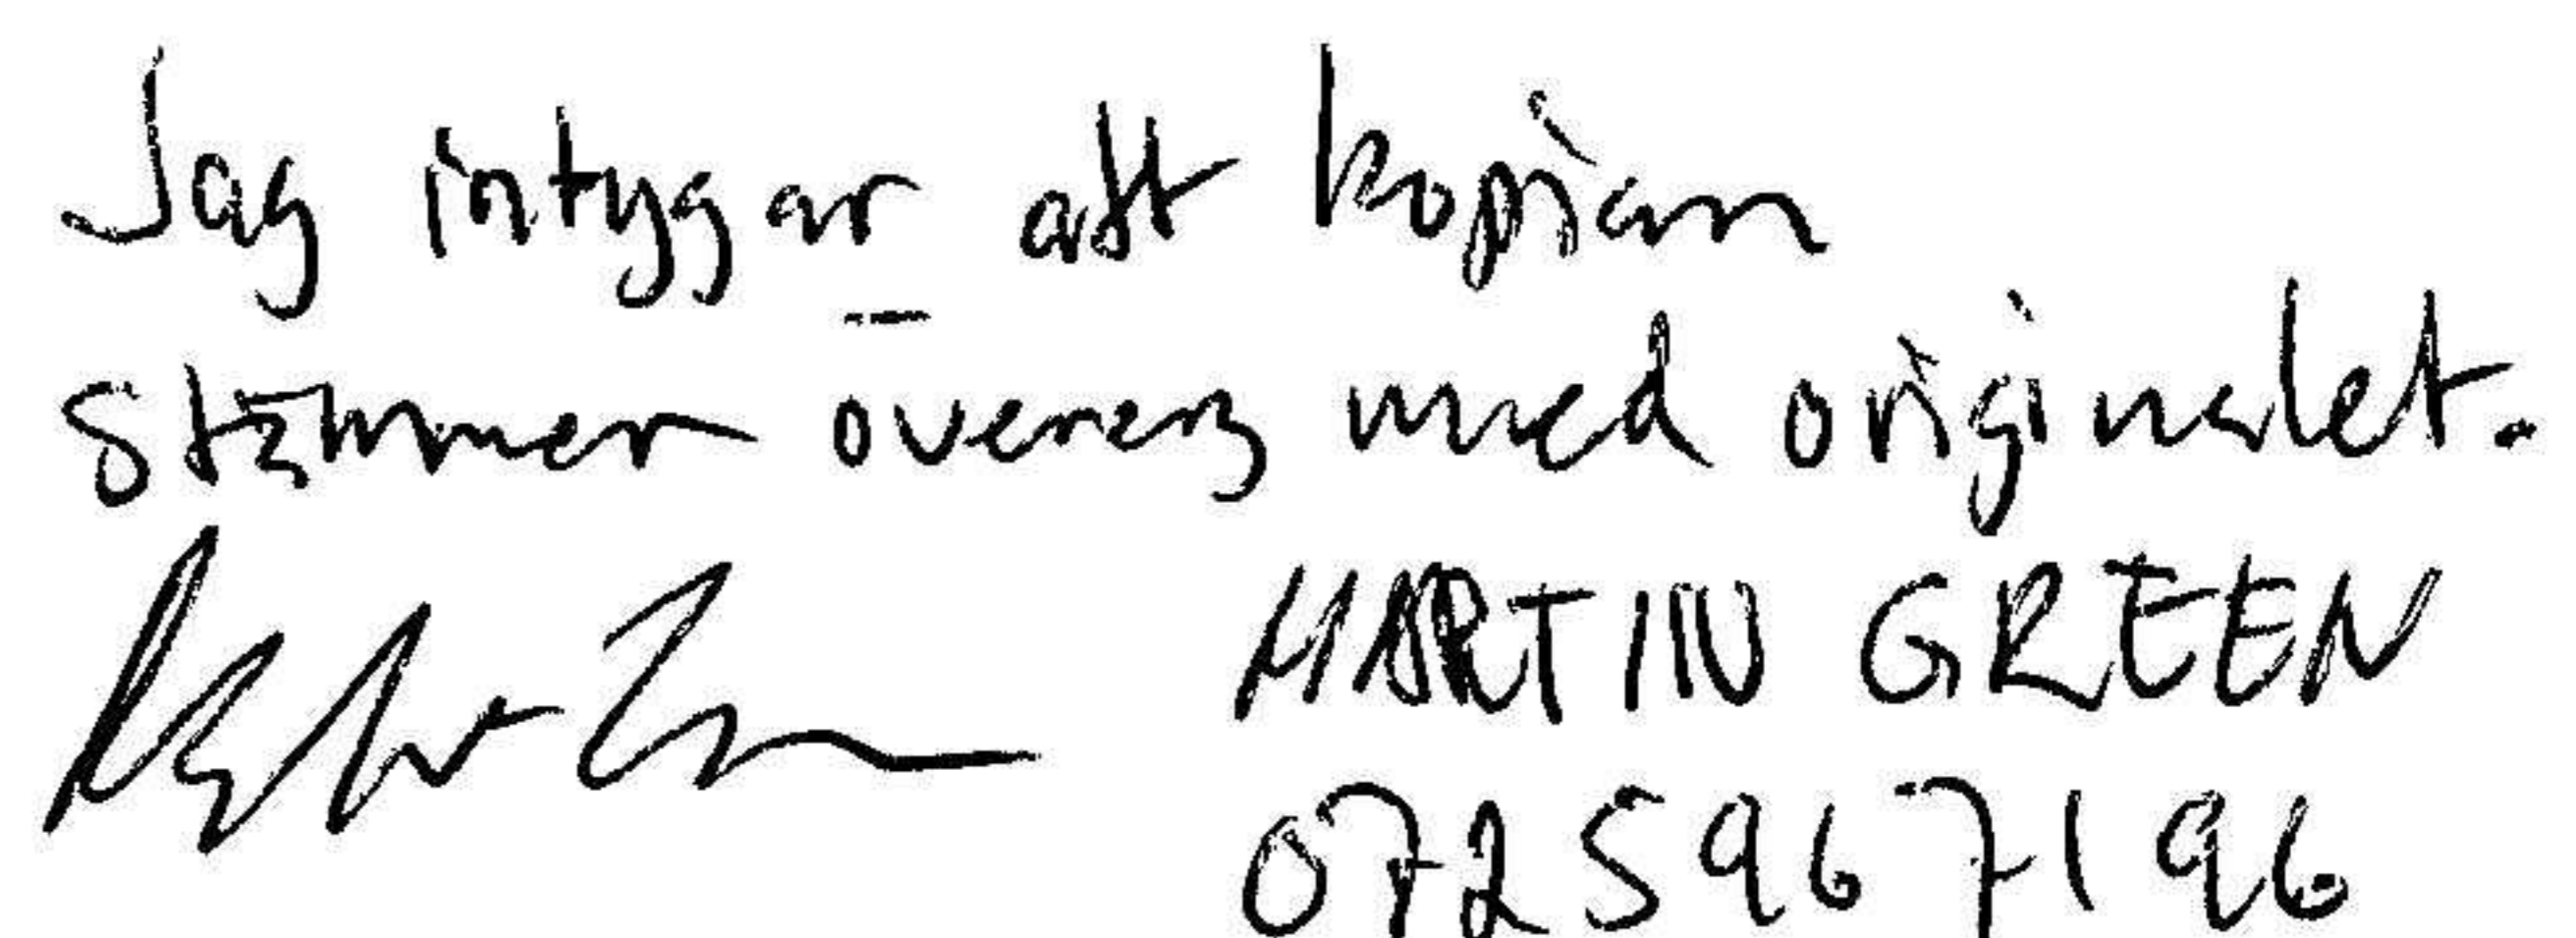 Jag intygar att kopian
stämmer överens med originalet.
MARTIN GREEN
0725967196